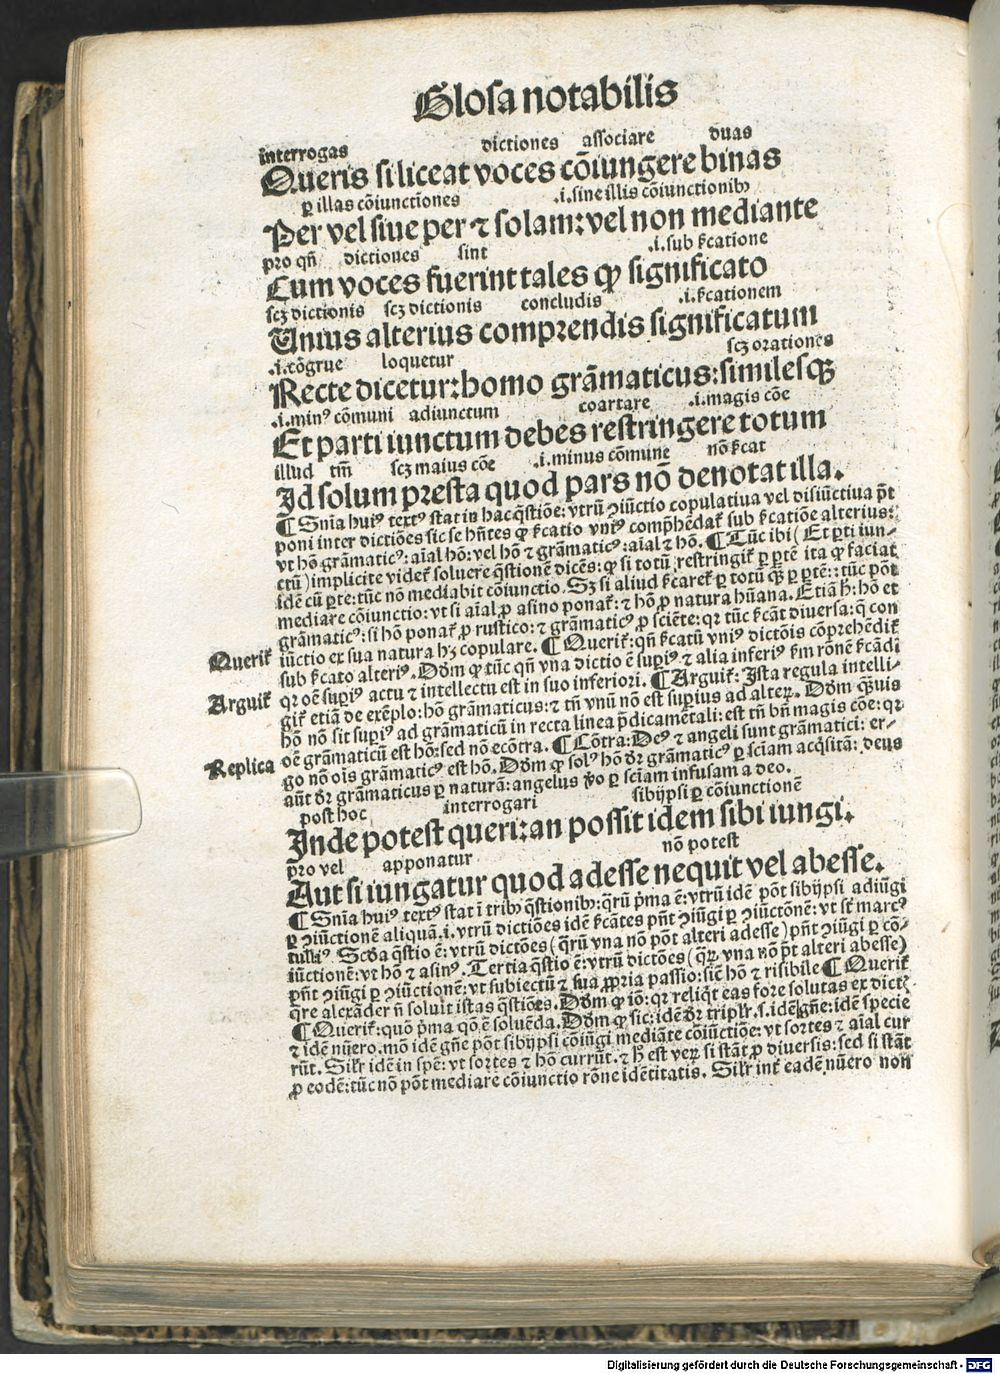 Glosa notabilis
interrogas dictiones associare duas
Queris si liceat voces cōiungere binas
ꝑ illas cōiunctiones .i. sine illis cōiunctionibꝫ
Per vel siue per ⁊ solam: vel non mediante
pro qn̄ dictiones sint .i. sub ſ̄catione
Cum voces fuerint tales ꝙ significato
scꝫ dictionis scꝫ dictionis concludis .i. ſ̄cationem
Unius alterius comprendis significatum
.i. cōgrue loquetur scꝫ orationes
Recte dicetur: homo grāmaticus: similesqꝫ
.i. minꝰ cōmuni adiunctum coartare .i. magis cōe
Et parti iunctum debes restringere totum
illud tm̄ scꝫ maius cōe .i. minus cōmune nō ſ̄cat
Id solum presta quod pars nō denotat illa.
¶ Snīa huiꝰ textꝰ stat in hac q̄stiōe: vtrū ↄiūctio copulatiua vel disiūctiua p̄t
poni inter dictiōes sic se hn̄tes ꝙ ſ̄catio vniꝰ comp̄hēdat̄ sub ſ̄catiōe alterius:
vt hō grāmaticꝰ: aīal hō: vel hō ⁊ grāmaticꝰ: aīal ⁊ hō. ¶ Tūc ibi (Et ꝑti iun-
ctū) implicite videt̄ soluere q̄stionē dicēs: ꝙ si totū restringit̄ ꝑ ꝑtē ita ꝙ faciat
idē cū ꝑte: tūc nō mediabit cōiunctio. Sꝫ si aliud ſ̄caret̄ ꝑ totū qꝫ ꝑ ꝑtē: tūc pōt
mediare cōiunctio: vt si aīal ꝓ asino ponat̄: ⁊ hō ꝓ natura hūana. Etiā h̄: hō et
grāmaticꝰ: si hō ponat̄ ꝓ rustico: ⁊ grāmaticꝰ ꝓ sciēte: qꝛ tūc ſ̄cāt diuersa: q̄ con
Querit̄ iūctio ex sua natura hꝫ copulare. ¶ Querit̄: qn̄ ſ̄catū vniꝰ dictōis cōprehēdit̄
sub ſ̄cato alteriꝰ. Dōm ꝙ tūc qn̄ vna dictio ē supiꝰ ⁊ alia inferiꝰ ẜm rōnē ſ̄cādi
Arguit̄ qꝛ oē supiꝰ actu ⁊ intellectu est in suo inferiori. ¶ Arguit̄: Ista regula intelli-
git̄ etiā de exēplo: hō grāmaticus: ⁊ tn̄ vnū nō est supius ad alteꝝ. Dōm qꝫuis
hō nō sit supiꝰ ad grāmaticū in recta linea p̄dicamētali: est tn̄ bn̄ magis cōe: qꝛ
oē grāmaticū est hō: sed nō ecōtra. ¶ Cōtra: Deꝰ ⁊ angeli sunt grāmatici: er-
Replica go nō oīs grāmaticꝰ est hō. Dōm ꝙ solꝰ hō dr̄ grāmaticꝰ ꝑ sciam acq̄sitā: deus
aūt dr̄ grāmaticus ꝑ naturā: angelus v̄o ꝑ sciam infusam a deo.
post hoc interrogari sibijpsi ꝑ cōiunctionē
Inde potest queri: an possit idem sibi iungi.
pro vel apponatur nō potest
Aut si iungatur quod adesse nequit vel abesse.
¶ Snīa huiꝰ textꝰ stat ī tribꝫ q̄stionibꝫ: qrū p̄ma ē: vtrū idē pōt sibijpsi adiūgi
ꝑ ↄiūctionē aliquā .i. vtrū dictiōes idē ſ̄cātes pn̄t ↄiūgi ꝑ ↄiūctōnē: vt st̄ marcꝰ
tulliꝰ. Scd̄a q̄stio ē: vtrū dictōes (q̄rū vna nō pōt alteri adesse) pn̄t ↄiūgi ꝑ cō-
iūctionē: vt hō ⁊ asinꝰ. Tertia q̄stio ē: vtrū dictōes (qꝝ vna nō p̄t alteri abesse)
pn̄t ↄiūgi ꝑ ↄiūctionē: vt subiectū ⁊ sua ꝓpria passio: sic hō ⁊ risibile ¶ Querit̄
q̄re alexāder n̄ soluit istas q̄stiōes. Dōm ꝙ iō: qꝛ reliq̄t eas fore solutas ex dictꝭ
¶ Querit̄: quō p̄ma qō ē soluēda. Dōm ꝙ sic: idē dr̄ triplr̄ .s. idē gn̄e: idē specie
⁊ idē nūero. mō idē gn̄e pōt sibijpsi cōiūgi mediāte cōiūctiōe: vt sortes ⁊ aīal cur
rūt. Silr̄ idē in spē: vt sortes ⁊ hō currūt. ⁊ h̄ est veꝝ si stāt ꝓ diuersis: sed si stāt
ꝓ eodē: tūc nō pōt mediare cōiunctio rōne idētitatis. Silr̄ int̄ eadē nūero non
Digitalisierung gefördert durch die Deutsche Forschungsgemeinschaft - DFG